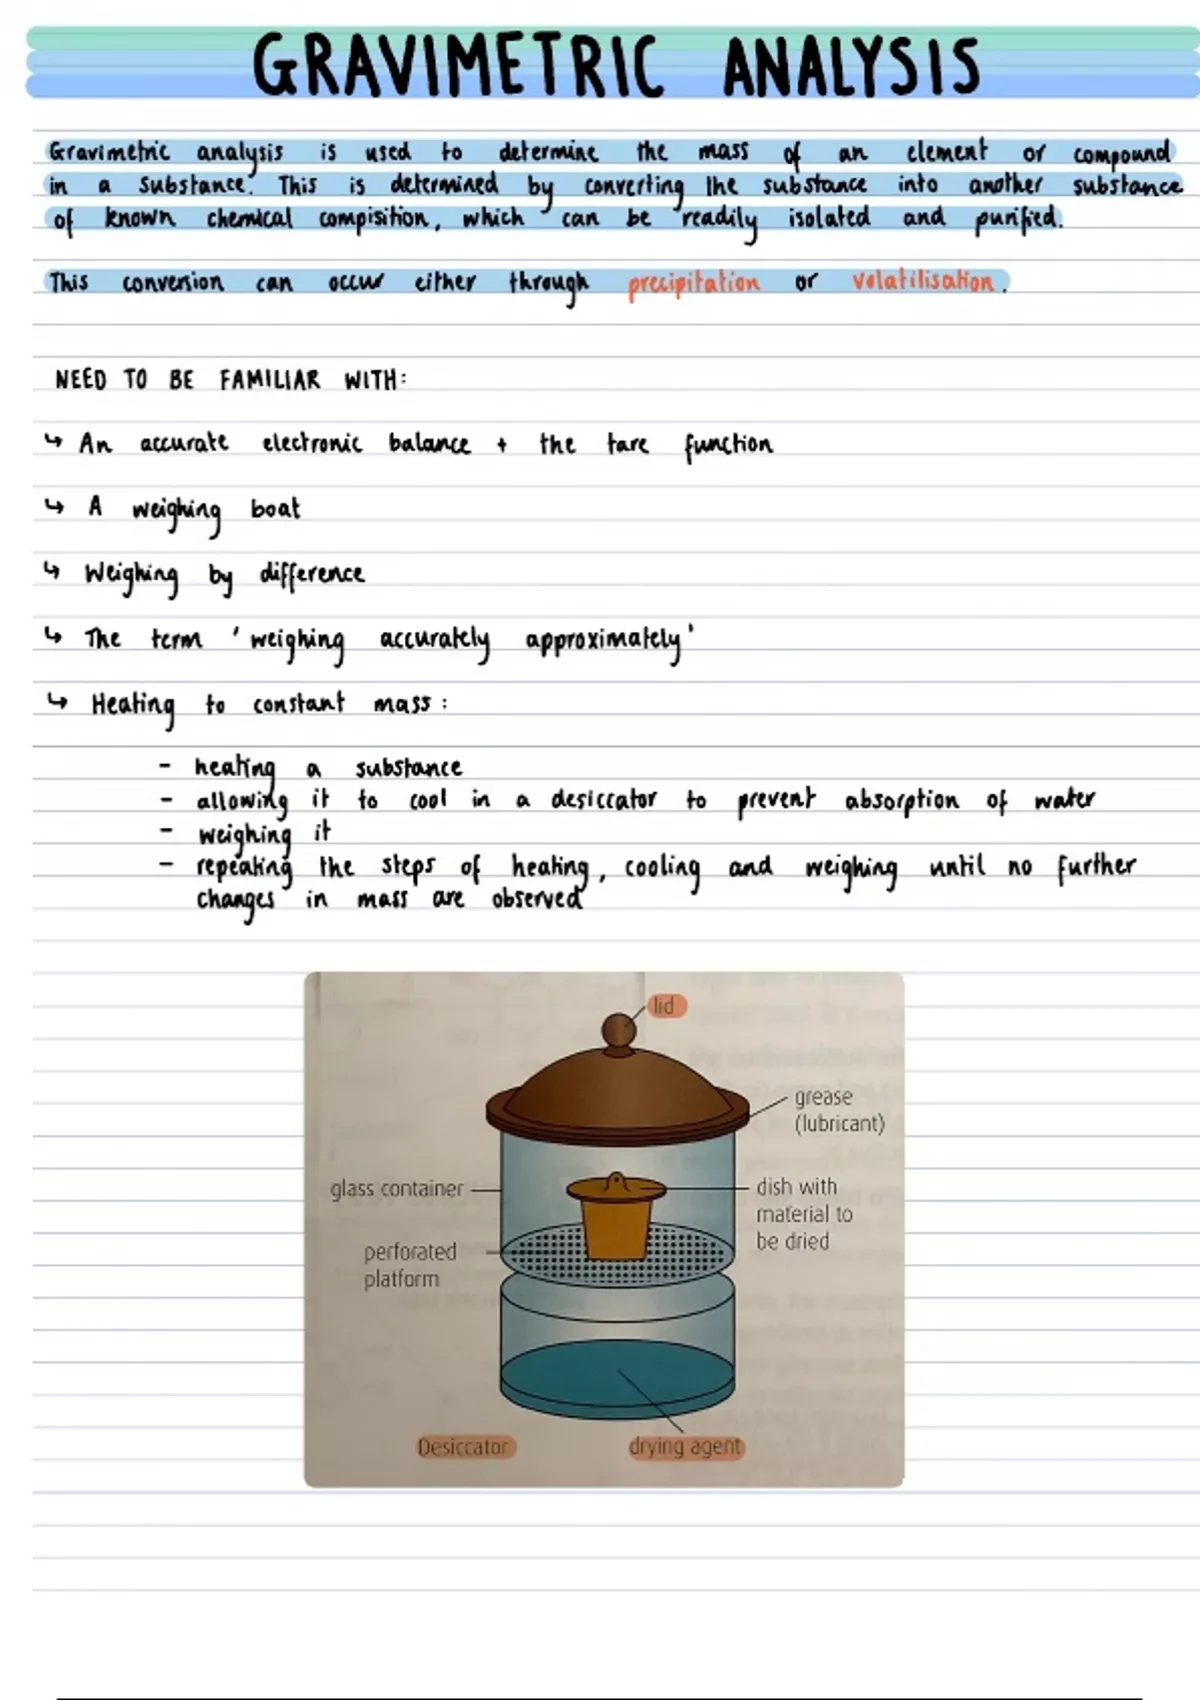 GRAVIMETRIC ANALYSIS
Gravimetric analysis is used to determine the mass of an element or compound
in a substance. This is determined by converting the substance into another substance
of known chemical compisition, which can be readily isolated and purified.
This conversion can occur either through precipitation or volatilisation.
NEED TO BE FAMILIAR WITH:
↳ An accurate electronic balance + the tare function
↳ A weighing boat
↳ Weighing by difference
↳ The term 'weighing accurately approximately'
↳ Heating to constant mass:
- heating a substance
- allowing it to cool in a desiccator to prevent absorption of water
- weighing it
- repeating the steps of heating, cooling and weighing until no further
changes in mass are observed
lid
grease
(lubricant)
glass container
dish with
material to
be dried
perforated
platform
Desiccator
drying agent